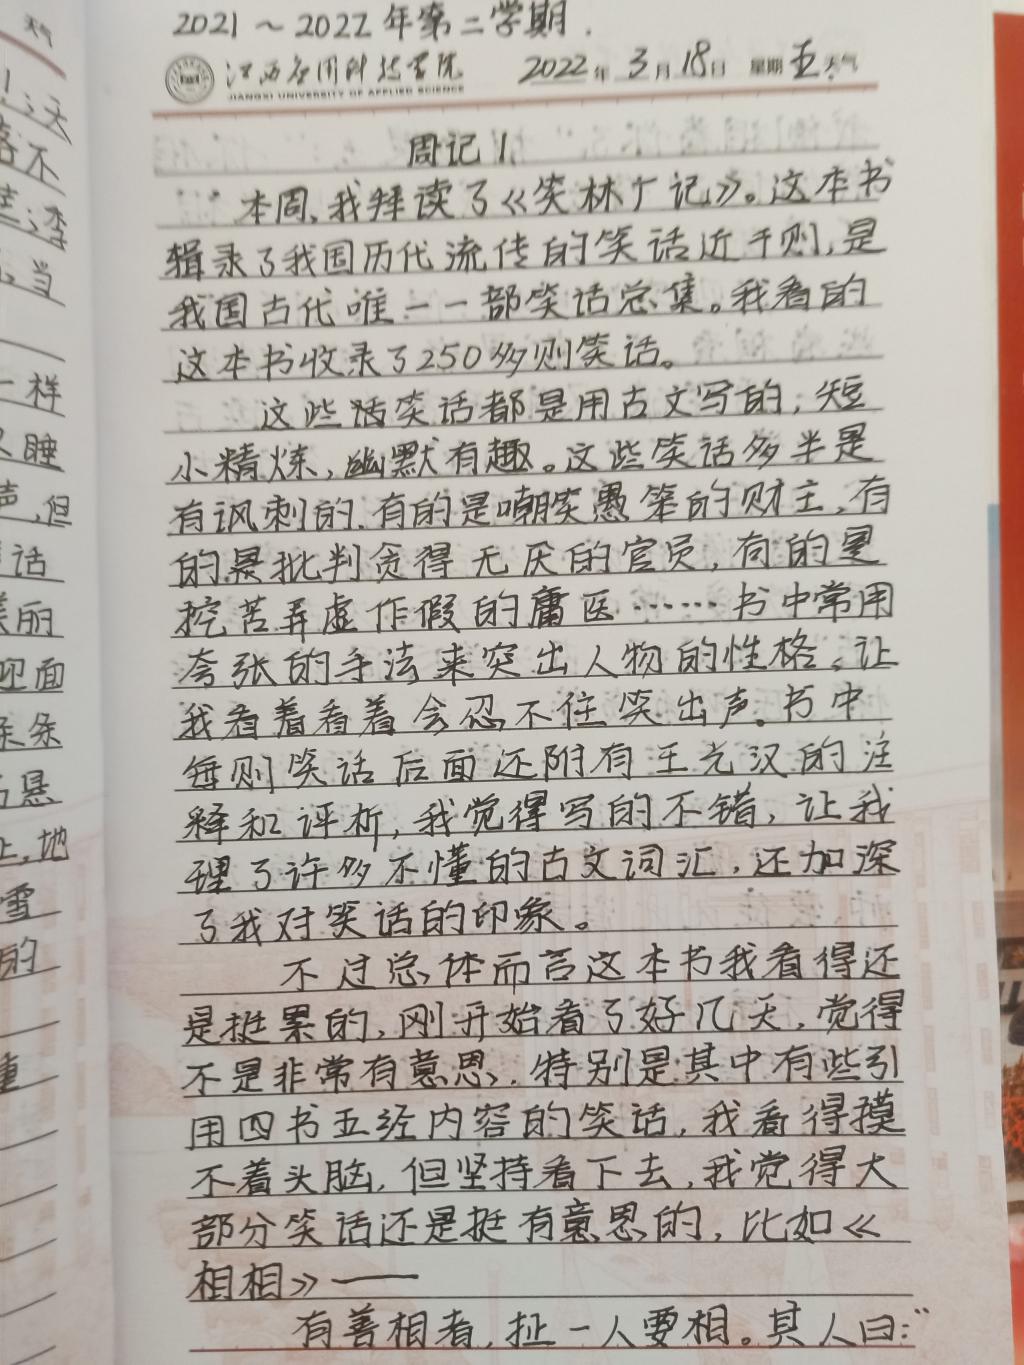 2021～2022年第二学期.
江西应用科技学院 2022年3月18日 星期五 天气
JIANGXI UNIVERSITY OF APPLIED SCIENCE
周记1
本周,我拜读了《笑林广记》。这本书
辑录了我国历代流传的笑话近千则,是
我国古代唯一一部笑话总集。我看的
这本书收录了250多则笑话。
这些话笑话都是用古文写的,短
小精炼,幽默有趣。这些笑话多半是
有讽刺的,有的是嘲笑愚笨的财主,有
的是批判贪得无厌的官员,有的是
挖苦弄虚作假的庸医……书中常用
夸张的手法来突出人物的性格,让
我看着看着会忍不住笑出声。书中
每则笑话后面还附有王允汉的注
释和评析,我觉得写的不错,让我
理了许多不懂的古文词汇,还加深
了我对笑话的印象。
不过总体而言这本书我看得还
是挺累的,刚开始看了好几天,觉得
不是非常有意思,特别是其中有些引
用四书五经内容的笑话,我看得摸
不着头脑,但坚持看下去,我觉得大
部分笑话还是挺有意思的,比如《
相相》——
有善相者,扯一人要相。其人曰:“
天气
一样
睡
声,但
话
丽
面
条
悬
地
雪
的